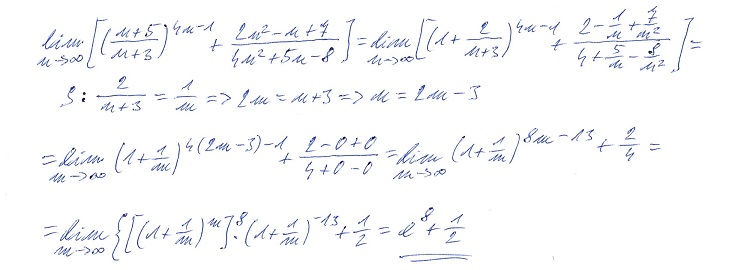 lim_{n→∞} [((n+5)/(n+3))^{4n-1} + (2n²-n+7)/(4n²+5n-8)] = lim_{n→∞} [(1+2/(n+3))^{4n-1} + (2-1/n+7/n²)/(4+5/n-8/n²)] =
S: 2/(n+3) = 1/m => 2m = n+3 => n = 2m-3
= lim_{m→∞} (1+1/m)^{4(2m-3)-1} + (2-0+0)/(4+0-0) = lim_{m→∞} (1+1/m)^{8m-13} + 2/4 =
= lim_{m→∞} {[(1+1/m)^m]^8·(1+1/m)^{-13} + 1/2 = e^8 + 1/2